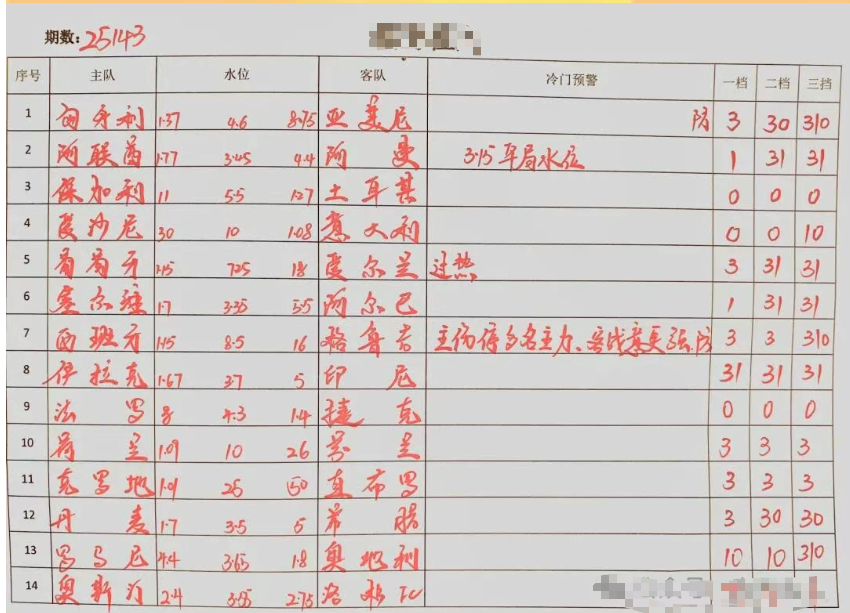 期数: 25143
序号 主队 水位 客队 冷门预警 一档 二档 三挡
1 匈牙利 1·37 4.6 8·75 亚美尼 防 3 30 310
2 阿联酋 1·77 3·45 4.4 阿曼 3·15平局水位 1 31 31
3 保加利 11 5.5 1·27 土耳其 0 0 0
4 爱沙尼 30 10 1.08 意大利 0 0 10
5 葡萄牙 1·15 7.25 18 爱尔兰 过热 3 31 31
6 塞尔维 1·7 3·35 5·5 阿尔巴 1 31 31
7 西班牙 1·15 8·5 16 格鲁吉 主伤停多名主力、客战意更强.防 3 3 310
8 伊拉克 1·67 3·7 5 印尼 31 31 31
9 法罗 8 4.3 1.4 捷克 0 0 0
10 荷兰 1.09 10 26 芬兰 3 3 3
11 克罗地 1.01 26 150 直布罗 3 3 3
12 丹麦 1·7 3·5 5 希腊 3 30 30
13 罗马尼 4.4 3·65 1·8 奥地利 10 10 310
14 奥斯汀 2·4 3·55 2·75 洛杉FC